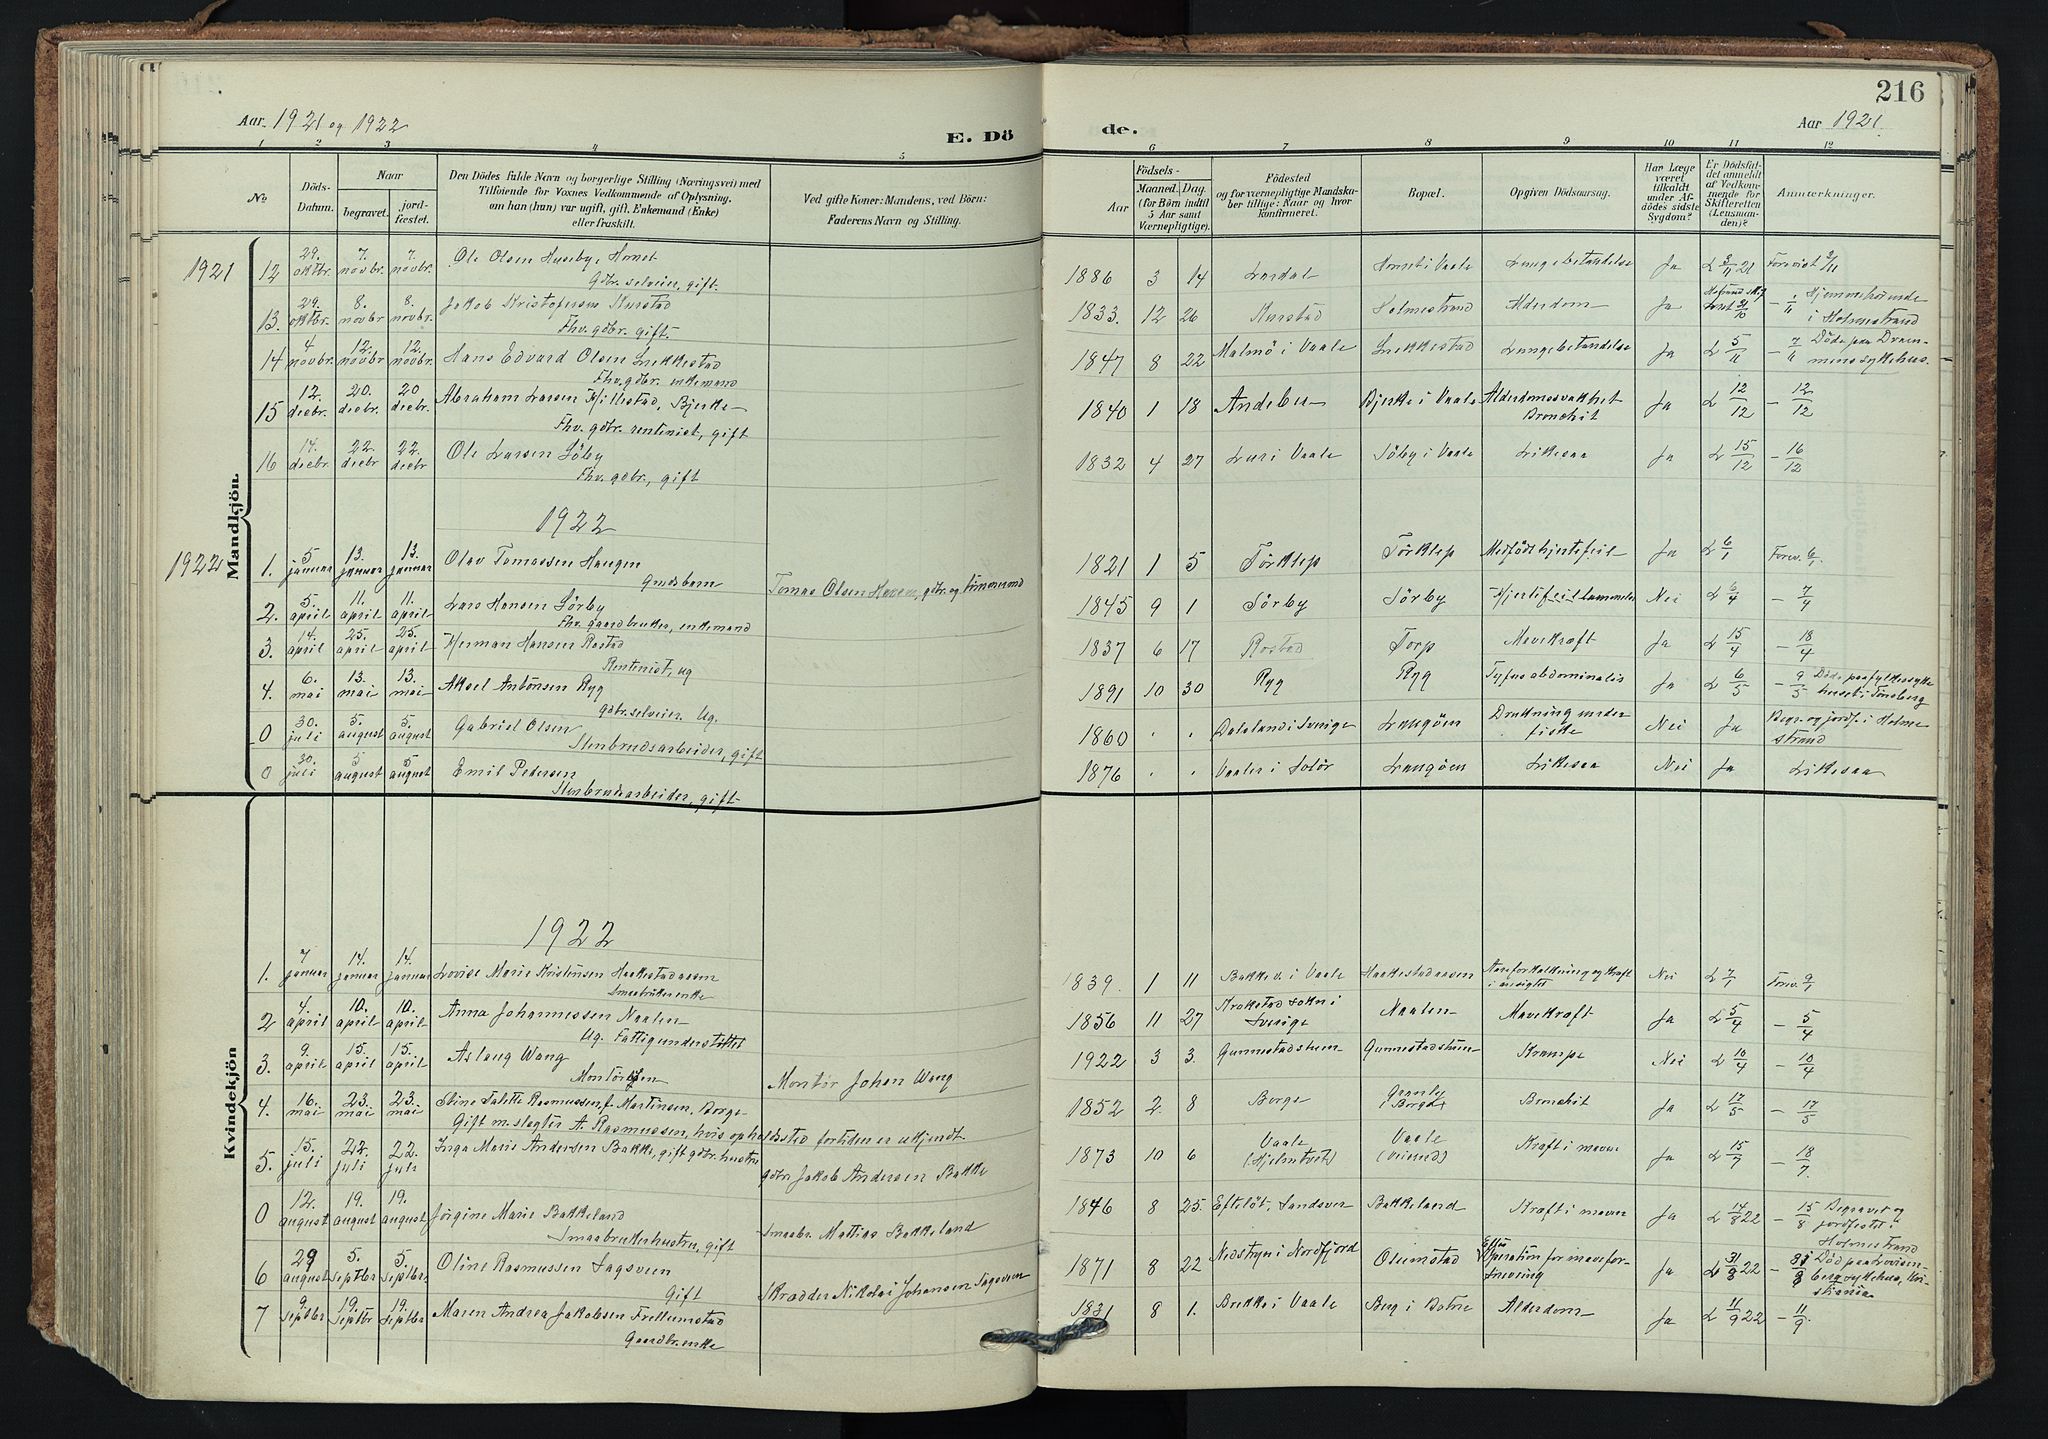 216
Aar. 1921 og 1922
E. Dö
de.
Aar 1921.
1 2 3 4 5
6 7 8 9 10 11 12
No
Döds-
Datum.
Naar
begravet.
jord-
fæstet.
Den Dödes fulde Navn og borgerlige Stilling (Næringsvei) med
Tilföiende for Voxnes Vedkommende af Oplysning,
om han (hun) var ugift, gift, Enkemand (Enke)
eller fraskilt.
Ved gifte Koner: Mandens, ved Börn:
Faderens Navn og Stilling.
Födsels-
Aar
Maaned. Dag.
(for Börn indtil
5 Aar samt
Værnepligtige).
Födested
og for værnepligtige Mandska-
ber tillige: Naar og hvor
konfirmeret.
Bopæl.
Opgiven Dödsaarsag.
Har Læge
været
tilkaldt
under Af-
dödes sidste
Sygdom?
Er Dödsfal-
det anmeldt
af Vedkom-
mende for
Skifteretten
(Lensman-
den)?
Anmærkninger.
Mandkjön.
1921
12 29. oktbr. 7. novbr. 7. novbr. Ole Olsen Huseby, Hanet
Gdbr. selveier, gift.
1886 3 14 Lardal i Vaale Lungebetændelse Ja L 3/11 21
13. 29. oktbr. 8. novbr 8. novbr. Jakob Kristofersen Kurstad
Fhv. gdbr. gift.
1833. 12 26 Kurstad Holmestrand Alderdom Ja Hjemmehörende
i Holmestrand
14 4 novbr. 12. novbr 12. novbr. Hans Edvard Olsen Snekkestad
Fhv. gdbr. enkemand
1847 8 22 Malmö i Vaale Snekkestad Lungebetændelse Ja L 5/11 - 7/11 Döde paa Dram-
mens sykehus.
15 12. decbr. 20. decbr. 20 decbr. Abraham Larsen Hillestad, Bjerke
Fhv. gdbr. rentenist, gift
1840 1 18 Andebu Bjerke i Vaale Alderdomssvakhet
Bronchit Ja L 12/12 - 12/12
16 14. decbr. 22. decbr 22. decbr Ole Larsen Söby
Fhv. gdbr., gift
1832 4 27 i Vaale Söby i Vaale Likesaa Ja L 15/12 - 16/12
1922
1922
1. 5 januar 13. januar 13. januar Olav Tomassen Haugen
Tomas Olsen gdbr. og
1821 1 5 Törklep Törklep Medfödt hjertefeil Ja L 6/1 Forev. 6/1.
2. 5 april 11. april 11. april Lars Hansen Sörby
Fhv. gaardbruker, enkemand
1845 9 1 Sörby Sörby Nei L 6/4 - 7/4
3. 14. april 25. april 25. april Herman Hansen Rostad
Rentenist, ug
1837 6 17 Rostad Torp Mavekræft Ja L 15/4 - 18/4
4. 6. mai 13. mai 13. mai Aksel Antonsen Ryg
Gdbr. selveier. Ug.
1891 10 30 Ryg Ryg Tyfus abdominalis Ja L 6/5 - 9/5 Döde paa fylkessyke
huset i Tönsberg
0 30. juli 5. august 5. august Gabriel Olsen
Stenbrudsarbeider, gift
1860 " " Dalsland i Sverige Langöen Drukning under
fiske Nei Ja Begr. og jordf. i Holme
strand
0 30. juli 5 august 5 august Emil Pedersen
Stenbrudsarbeider, gift
1876 " " Vaaler i Solör Langöen Likesaa Nei Ja Likesaa
Kvindekjön
1922
1. 7 januar 14. januar 14. januar Lovise Marie Kristensen Haekestadaasen
Smaabrukerenke
1839. 1 11 Bakke i Vaale Haekestadaasen Aareforkalkning og kræft
i ansigtet Nei L 7/1 Forev. 9/1
2 4. april 10. april 10. april Anna Johannessen Naalen
Ug. Fattigunderstöttet
1856 11 27 sokn i
Sverige Naalen Mavekræft Ja L 5/4 - 5/4
3. 9. april 15. april 15. april Aslaug Wang
Montör Johan Wang
1922 3 3. Gunnestadstuen Gunnestadstuen Krampe Nei L 10/4 - 10/4
4. 16. mai 23. mai 23. mai Stine Talette Rasmussen, f. Martinsen, Borge
Gift m. slagter A. Rasmussen, hvis opholdssted fortiden er ukjendt
1852 2. 8 Borge Bronchit Ja L 17/5 - 17/5
5. 15. juli 22. juli 22. juli Inga Marie Andersen Bakke, gift gdbr. hustru
gdbr. Jakob Andersen Bakke
1873 10 6 Vaale
(Hjelmtvet) Vaale Kræft i maven Ja L 15/7 - 18/7
0 12. august 19. august 19. august Jörgine Marie Bakkeland
Smaabrukerhustru, gift
Smaabr. Mattias Bakkeland
1846 8 25. Efteløt, Sandsver Bakkeland Kræft i maven Ja L 14/8 22 - 15/8 Begravet og
jordfestet i
Holmestrand
6 29 august 5. septbr 5. septbr. Oline Rasmussen Sagsveen
Gift
Skrædder Nikolai Johansen Sagsveen
1871 8 22 Nedstryn i Nordfjord Olumstad Efter
Operation for mavefor-
snevring Ja L 31/8 22 Död paa Lovisen-
berg sykehus, Kri-
stiania
7 9. septbr 19. septbr 19. septbr Maren Andrea Jakobsen Frellumstad
Gaardbr. enke
1831 8 1. Brekke i Vaale Berg i Botne Alderdom Ja L 11/9 22 - 11/9.